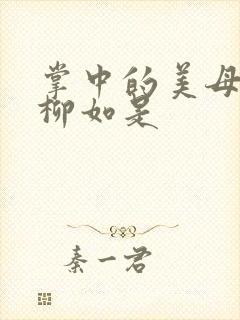 掌中的美母
柳如是
秦一君